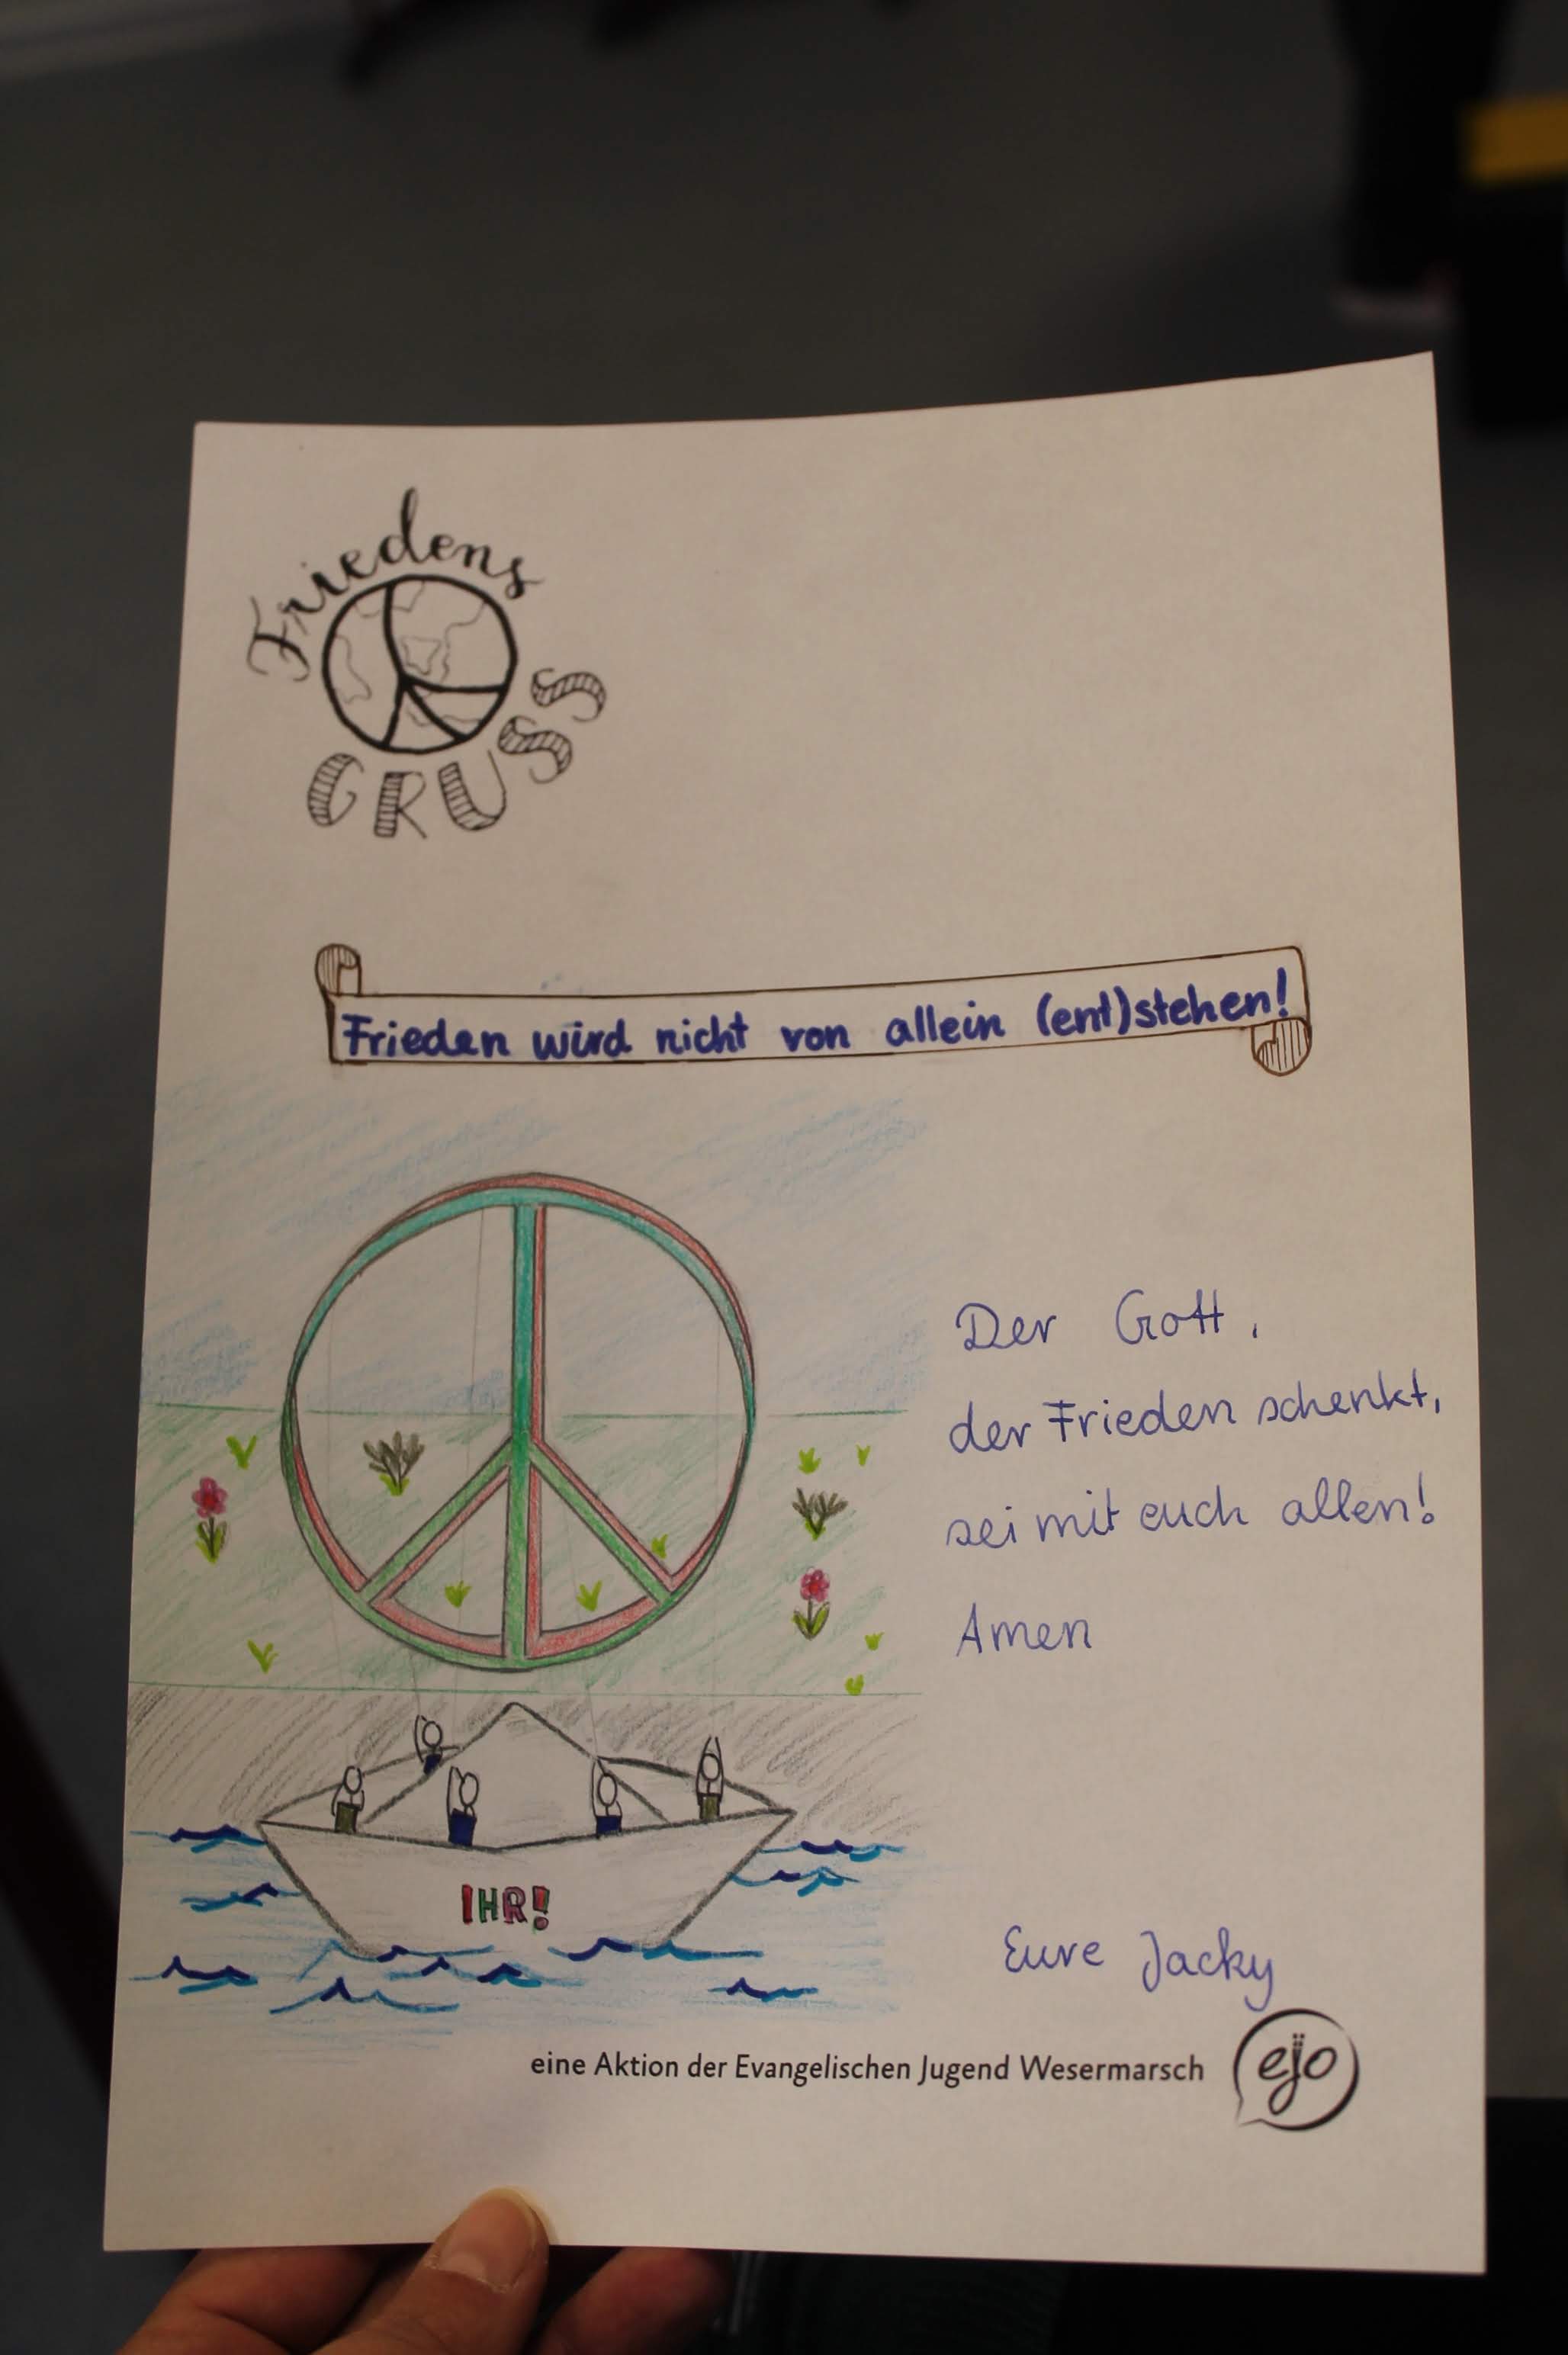 Friedens
GRUSS
Frieden wird nicht von allein (ent)stehen!
Der Gott,
der Frieden schenkt,
sei mit euch allen!
Amen
IHR!
Eure Jacky
eine Aktion der Evangelischen Jugend Wesermarsch
ejo